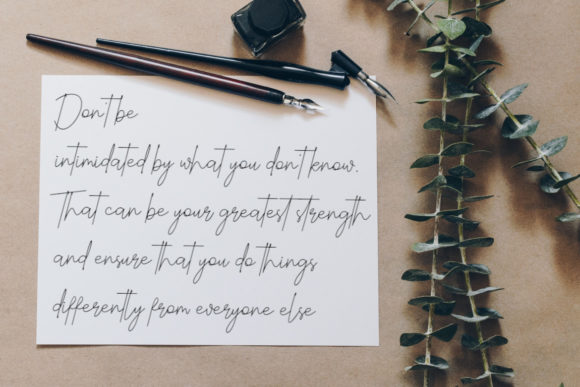 Don't be
intimidated by what you don't know.
That can be your greatest strength
and ensure that you do things
differently from everyone else